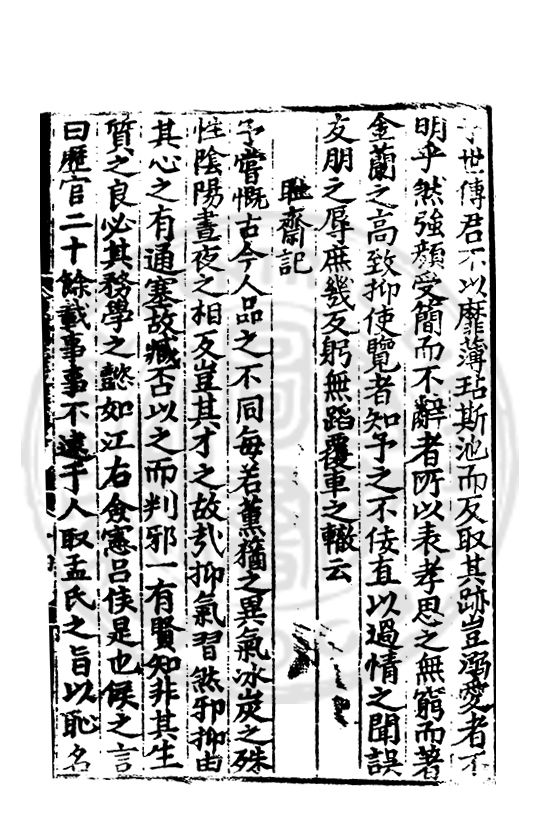 世傳君不以靡薄玷斯池而反取其跡豈溺愛者不
明乎然強顏受簡而不辭者所以表孝思之無窮而著
金蘭之高致抑使覽者知予之不佞直以過情之聞誤
友朋之辱庶幾反躬無蹈覆車之轍云
恥齋記
予嘗慨古今人品之不同每若薰蕕之異氣冰炭之殊
性陰陽晝夜之相反豈其才之故扎抑氣習然邪抑由
其心之有通塞故臧否以之而判邪一有賢知非其生
質之良必其務學之懿如江右僉憲呂侯是也侯之言
曰歷官二十餘載事事不逮于人取孟氏之旨以恥名